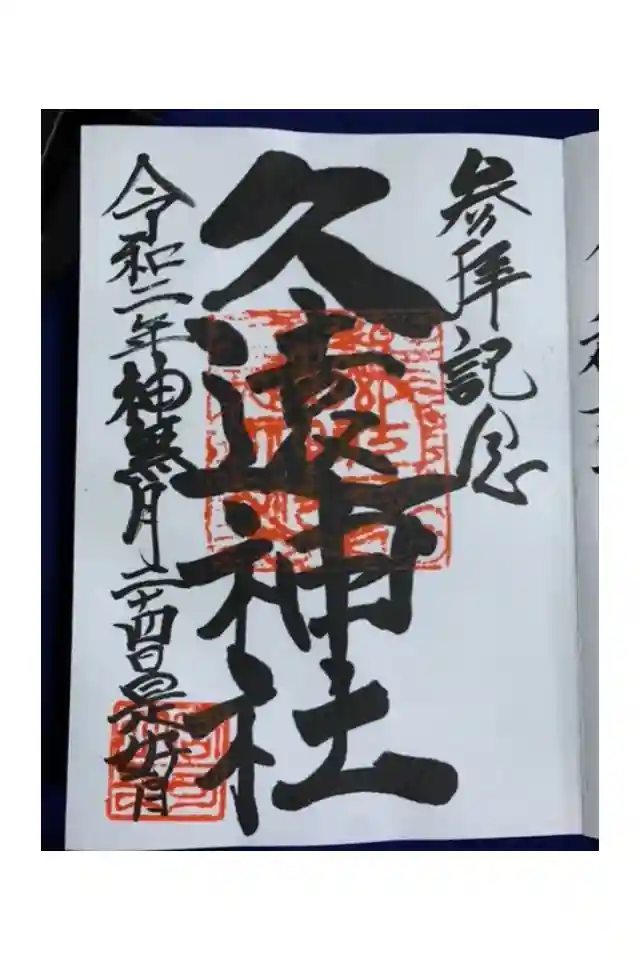 参拜記念
久遠神社
令和二年神無月二十四日是好日